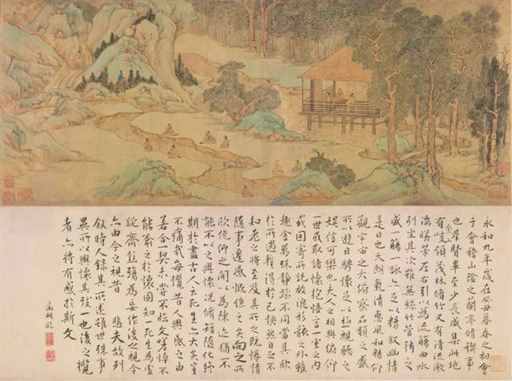 永和九年歲在癸丑暮春之初會
于會稽山陰之蘭亭脩禊事
也群賢畢至少長咸集此地
有峻領茂林脩竹又有清流激
湍暎帶左右引以為流觴曲水
列坐其次雖無絲竹管弦之
盛一觴一詠亦足以暢敘幽情
是日也天朗氣清惠風和暢仰
觀宇宙之大俯察品類之盛
所以遊目騁懷足以極視聽之
娛信可樂也夫人之相與俯仰
一世或取諸懷抱悟言一室之內
或因寄所託放浪形骸之外雖
趣舍萬殊靜躁不同當其欣
於所遇暫得於己快然自足不
知老之將至及其所之既惓情
隨事遷感慨係之矣向之所
欣俛仰之間以為陳迹猶不
能不以之興懷況脩短隨化終
期於盡古人云死生亦大矣豈
不痛哉每攬昔人興感之由
若合一契未嘗不臨文嗟悼不
能喻之於懷固知一死生為虛
誕齊彭殤為妄作後之視今
亦由今之視昔 悲夫故列
敘時人錄其所述雖世殊事
異所以興懷其致一也後之攬
者亦將有感於斯文